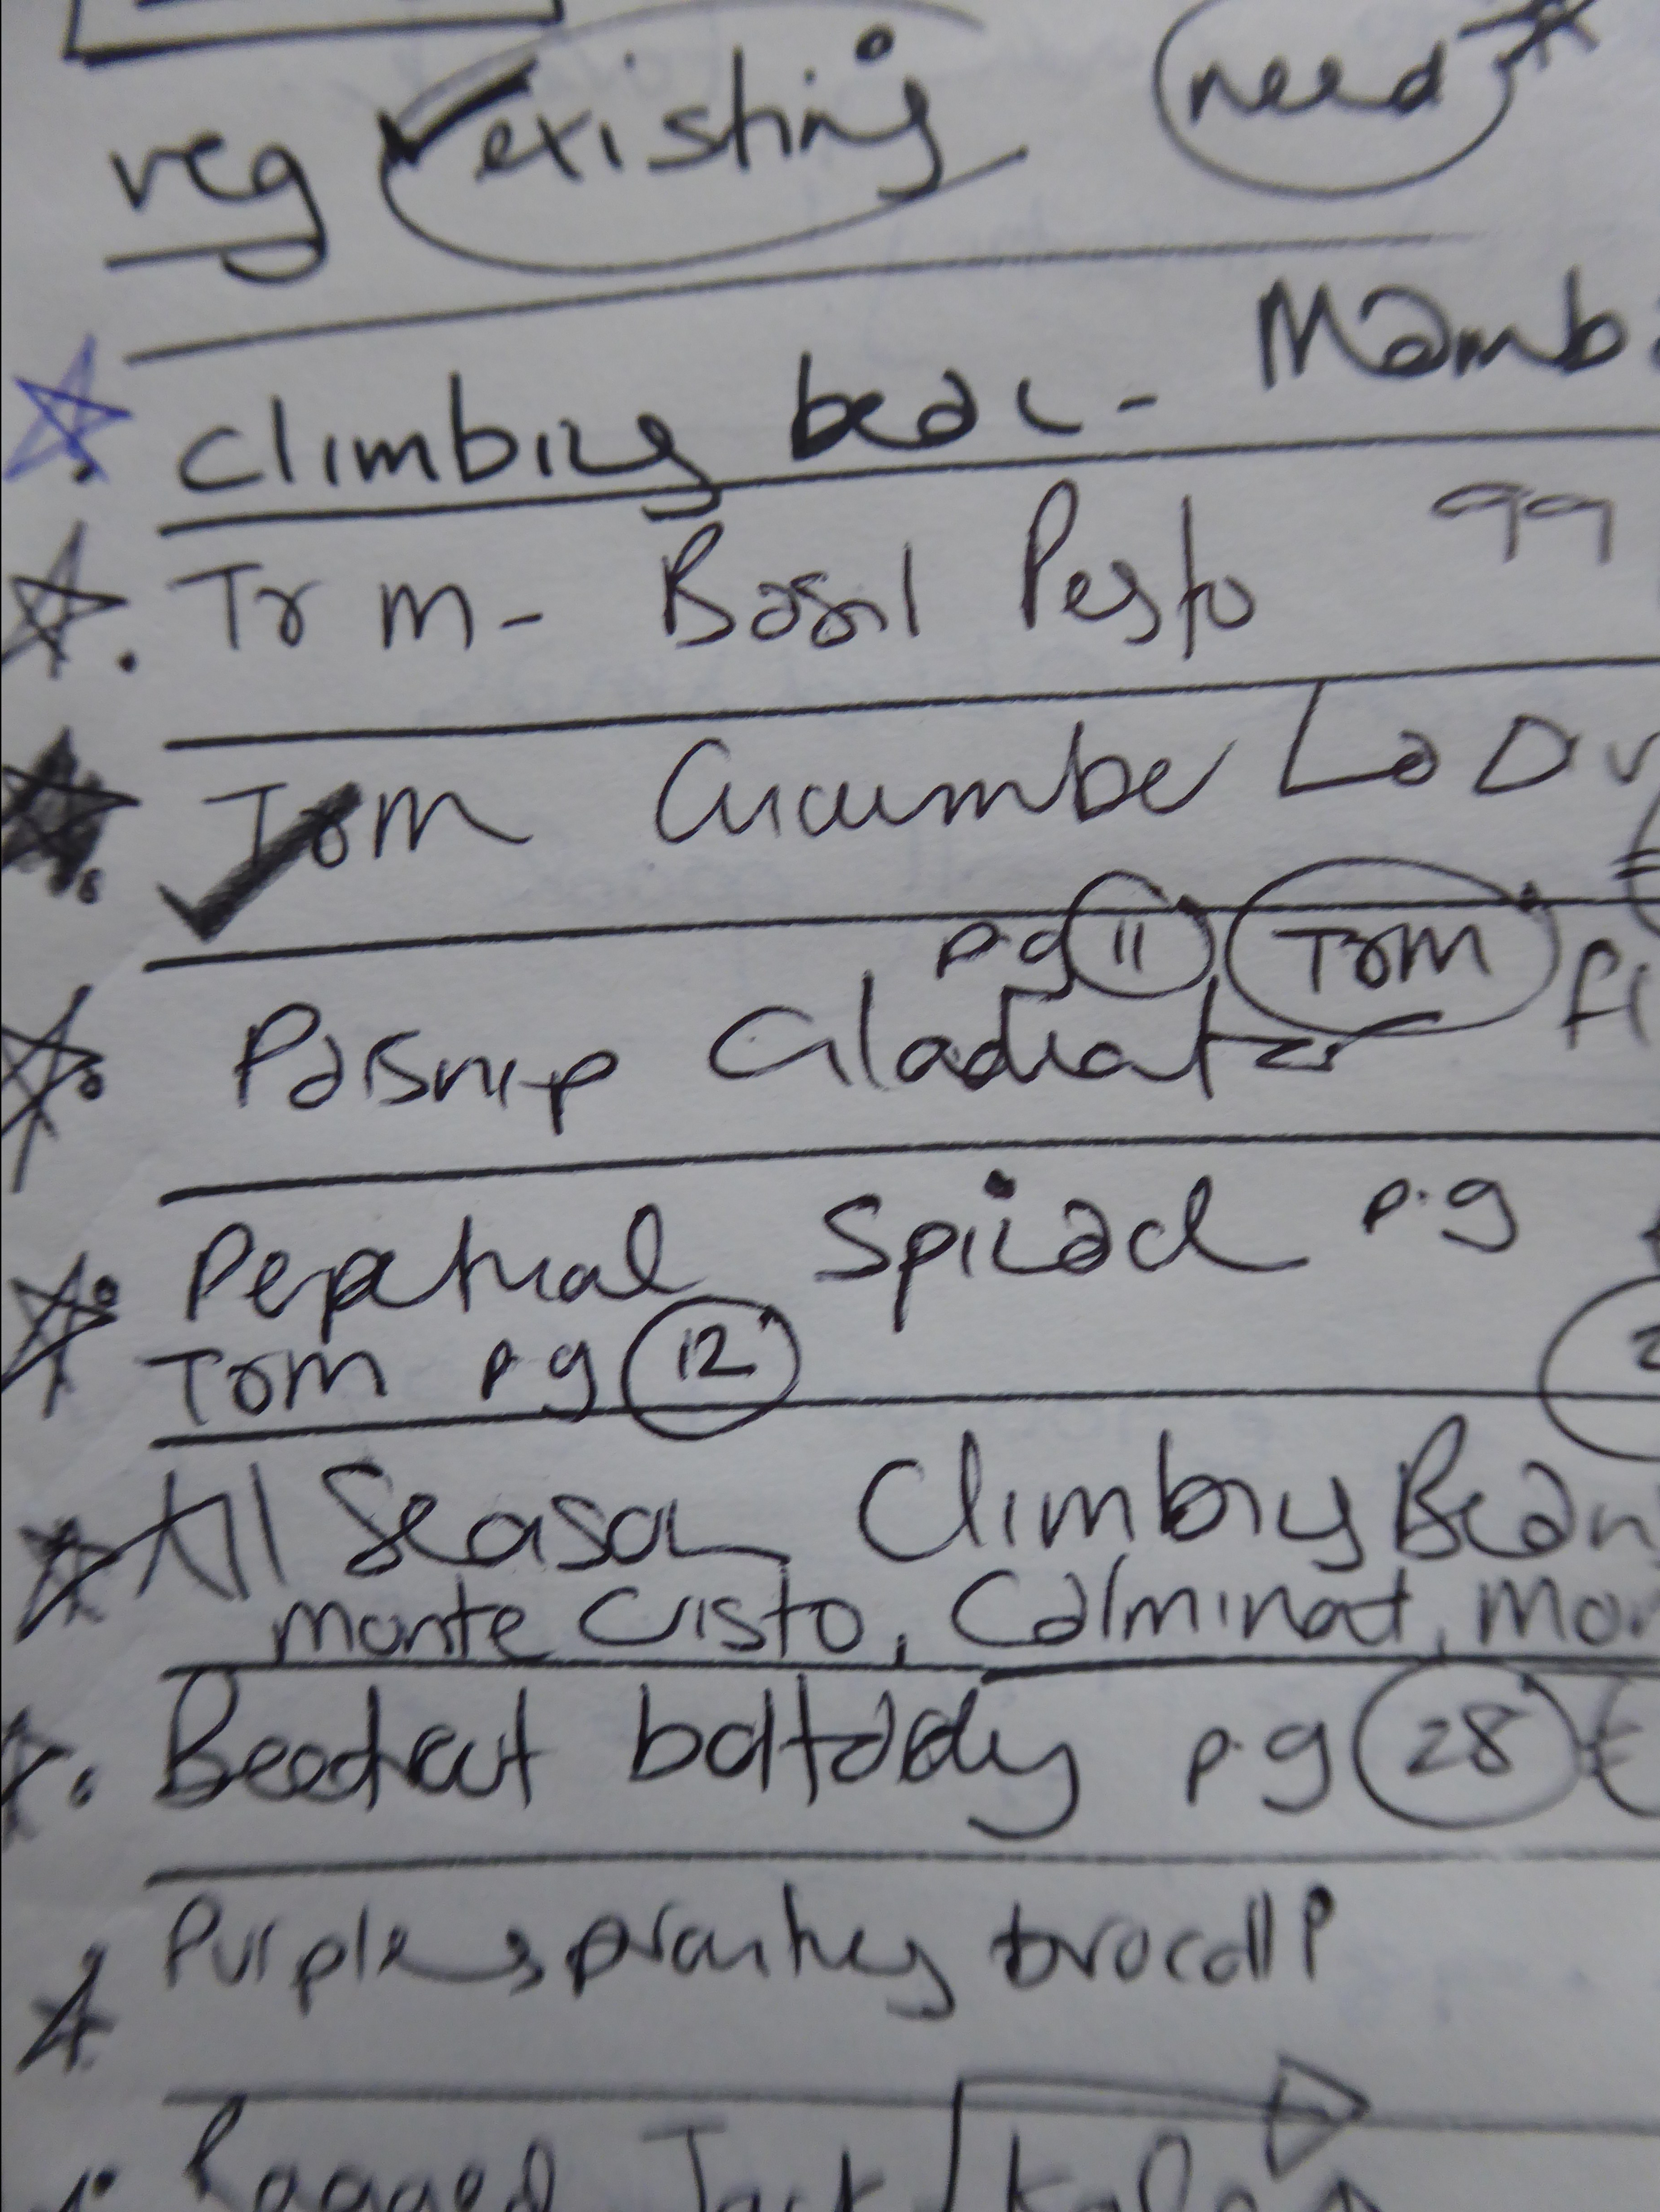 veg existing need
climbing bean - Mamb
T&M - Basil Pesto 99
T&M Cucumber La Div
pg 11 T&M
Parsnip Gladiator
Perpetual Spinach p.g
T&M pg 12
All Season Climbing Bean
monte Cristo, Calminat, Mon
Beetroot boltardy p.g 28 £
Purple sprouting brocolli
Ragged Jack Kale